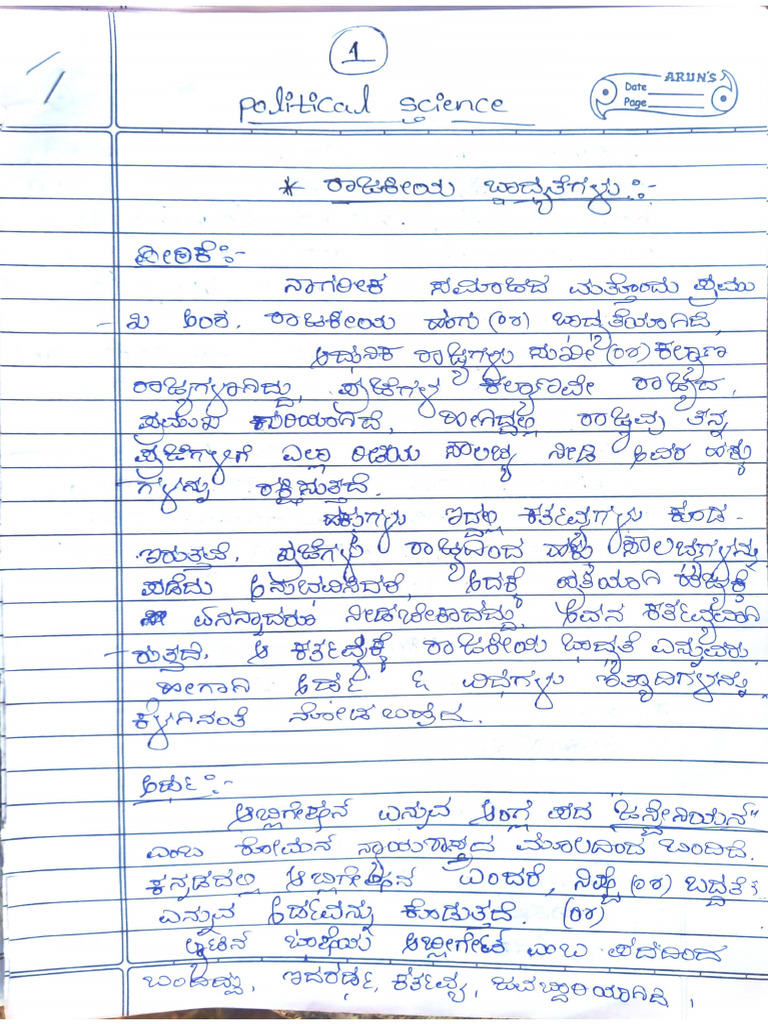 1
ARUN'S
Date
Page
political science
* ರಾಜಕೀಯ ಬಾದ್ಯತೆಗಳು :-
ಪೀಠಿಕೆ :-
ನಾಗರೀಕ ಸಮಾಜದ ಮತ್ತೊಂದು ಪ್ರಮು
ಖ ಅಂಶ. ರಾಜಕೀಯ ಹಂಗು (or) ಬಾದ್ಯತೆಯಾಗಿದೆ,
ಆದುನಿಕ ರಾಜ್ಯಗಳು ಸುಖೀ (or) ಕಲ್ಯಾಣ
ರಾಜ್ಯಗಳಾಗಿದ್ದು, ಪ್ರಜೆಗಳ ಕಲ್ಯಾಣವೇ ರಾಜ್ಯದ
ಪ್ರಮುಖ ಗುರಿಯಾಗಿದೆ, ಹೀಗಿದ್ದಲ್ಲಿ ರಾಜ್ಯವು ತನ್ನ
ಪ್ರಜೆಗಳಿಗೆ ಎಲ್ಲಾ ರೀತಿಯ ಸೌಲಭ್ಯ ನೀಡಿ ಅವರ ಹಕ್ಕು
ಗಳನ್ನು ರಕ್ಷಿಸುತ್ತದೆ.
ಹಕ್ಕುಗಳು ಇದ್ದಲ್ಲಿ ಕರ್ತವ್ಯಗಳು ಕೂಡ
ಇರುತ್ತವೆ. ಪ್ರಜೆಗಳು ರಾಜ್ಯದಿಂದ ಹಲವು ಸೌಲಭ್ಯಗಳನ್ನು
ಪಡೆದು ಅನುಭವಿಸಿದರೆ, ಅದಕ್ಕೆ ಪ್ರತಿಯಾಗಿ ರಾಜ್ಯಕ್ಕೆ
ಏನನ್ನಾದರೂ ನೀಡಬೇಕಾದದ್ದು, ಅವನ ಕರ್ತವ್ಯವಾಗಿ
ರುತ್ತದೆ. ಆ ಕರ್ತವ್ಯಕ್ಕೆ ರಾಜಕೀಯ ಬಾದ್ಯತೆ ಎನ್ನುವರು.
ಹೀಗಾಗಿ ಅರ್ಥ & ವಿಧಗಳು ಇತ್ಯಾದಿಗಳನ್ನು
ಕೆಳಗಿನಂತೆ ನೋಡಬಹುದು.
ಅರ್ಥ :-
ಆಬ್ಲಿಗೇಷನ್ ಎನ್ನುವ ಆಂಗ್ಲ ಪದ
ಎಂಬ ರೋಮನ್ ನ್ಯಾಯಶಾಸ್ತ್ರದ ಮೂಲದಿಂದ ಬಂದಿದೆ.
ಕನ್ನಡದಲ್ಲಿ ಆಬ್ಲಿಗೇಷನ್ ಎಂದರೆ, ನಿಷ್ಠೆ (or) ಬದ್ದತೆ
ಎನ್ನುವ ಅರ್ಥವನ್ನು ಕೊಡುತ್ತದೆ. (or)
ಲ್ಯಾಟಿನ್ ಭಾಷೆಯ ಆಬ್ಲಿಗೇಟ್ ಎಂಬ ಪದದಿಂದ
ಬಂದಿದ್ದು, ಇದರರ್ಥ, ಕರ್ತವ್ಯ, ಜವಬ್ದಾರಿಯಾಗಿದೆ,